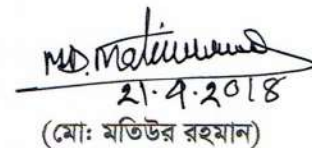 MD. Matiur
21.4.2018
(মোঃ মতিউর রহমান)